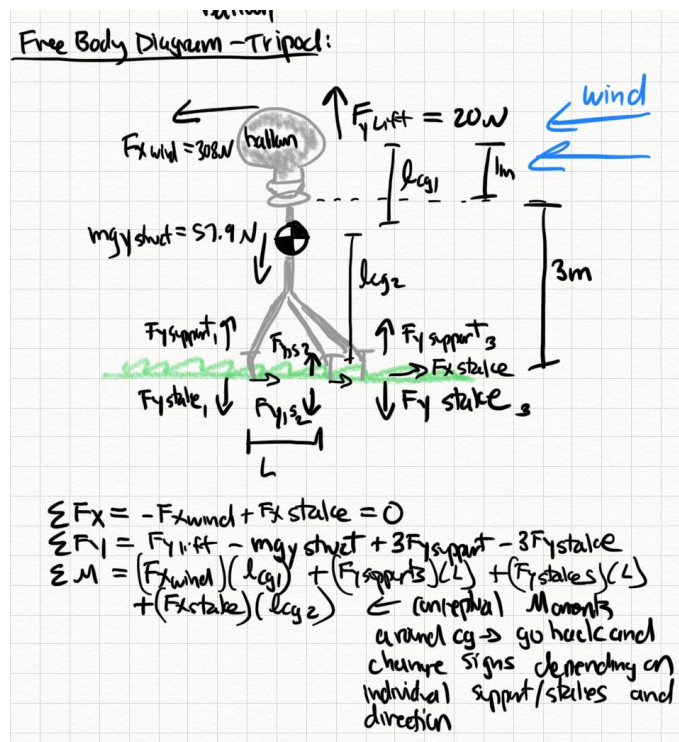 Free Body Diagram - Tripod:
wind
Fy Lift = 20N
Fx wind = 308N
ballon
lcg1
1m
mgy struct = 57.9 N
lcg2
3m
Fy support1
Fy support3
Fx stake
Fy stake1
Fy stake3
L
ΣFx = -Fxwind + Fx stake = 0
ΣFy = Fy lift - mgy struct + 3Fy support - 3Fy stake
ΣM = (Fxwind)(lcg1) + (Fy support)(L) + (Fy stakes)(L)
+ (Fx stake)(lcg2) ← conceptual Moments
around cg → go back and
change signs depending on
individual support/stakes and
direction